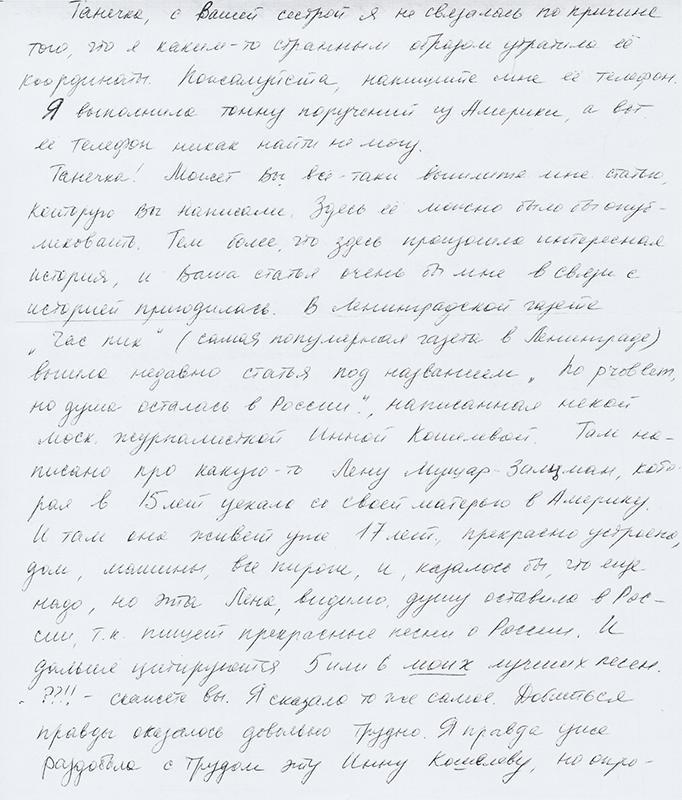 Танечка, с Вашей сестрой я не связалась по причине
того, что я каким-то странным образом утратила её
координаты. Пожалуйста, напишите мне её телефон.
Я выполнила тонну поручений из Америки, а вот
её телефон никак найти не могу.
Танечка! Может Вы всё-таки вышлите мне статью,
которую Вы написали. Здесь её можно было бы опуб-
ликовать. Тем более, что здесь произошла интересная
история, и Ваша статья очень бы мне в связи с
историей пригодилась. В Ленинградской газете
„Час пик" (самая популярная газета в Ленинграде)
вышла недавно статья под названием „
но душа осталась в России", написанная некой
моск. журналисткой Инной Кошелевой. Там на-
писано про какую-то Лену Мущар-Зальцман, кото-
рая в 15 лет уехала со своей матерью в Америку.
И там она живёт уже 17 лет, прекрасно устроена,
дом, машины, все пироги, и, казалось бы, что ещё
надо, но эта Лена, видимо, душу оставила в Рос-
сии, т.к. пишет прекрасные песни о России. И
дальше цитируются 5 или 6 моих лучших песен.
- ??!! - скажете вы. Я сказала то же самое. Добиться
правды оказалось довольно трудно. Я правда уже
раздобыла с трудом эту Инну Кошелеву, но опро-